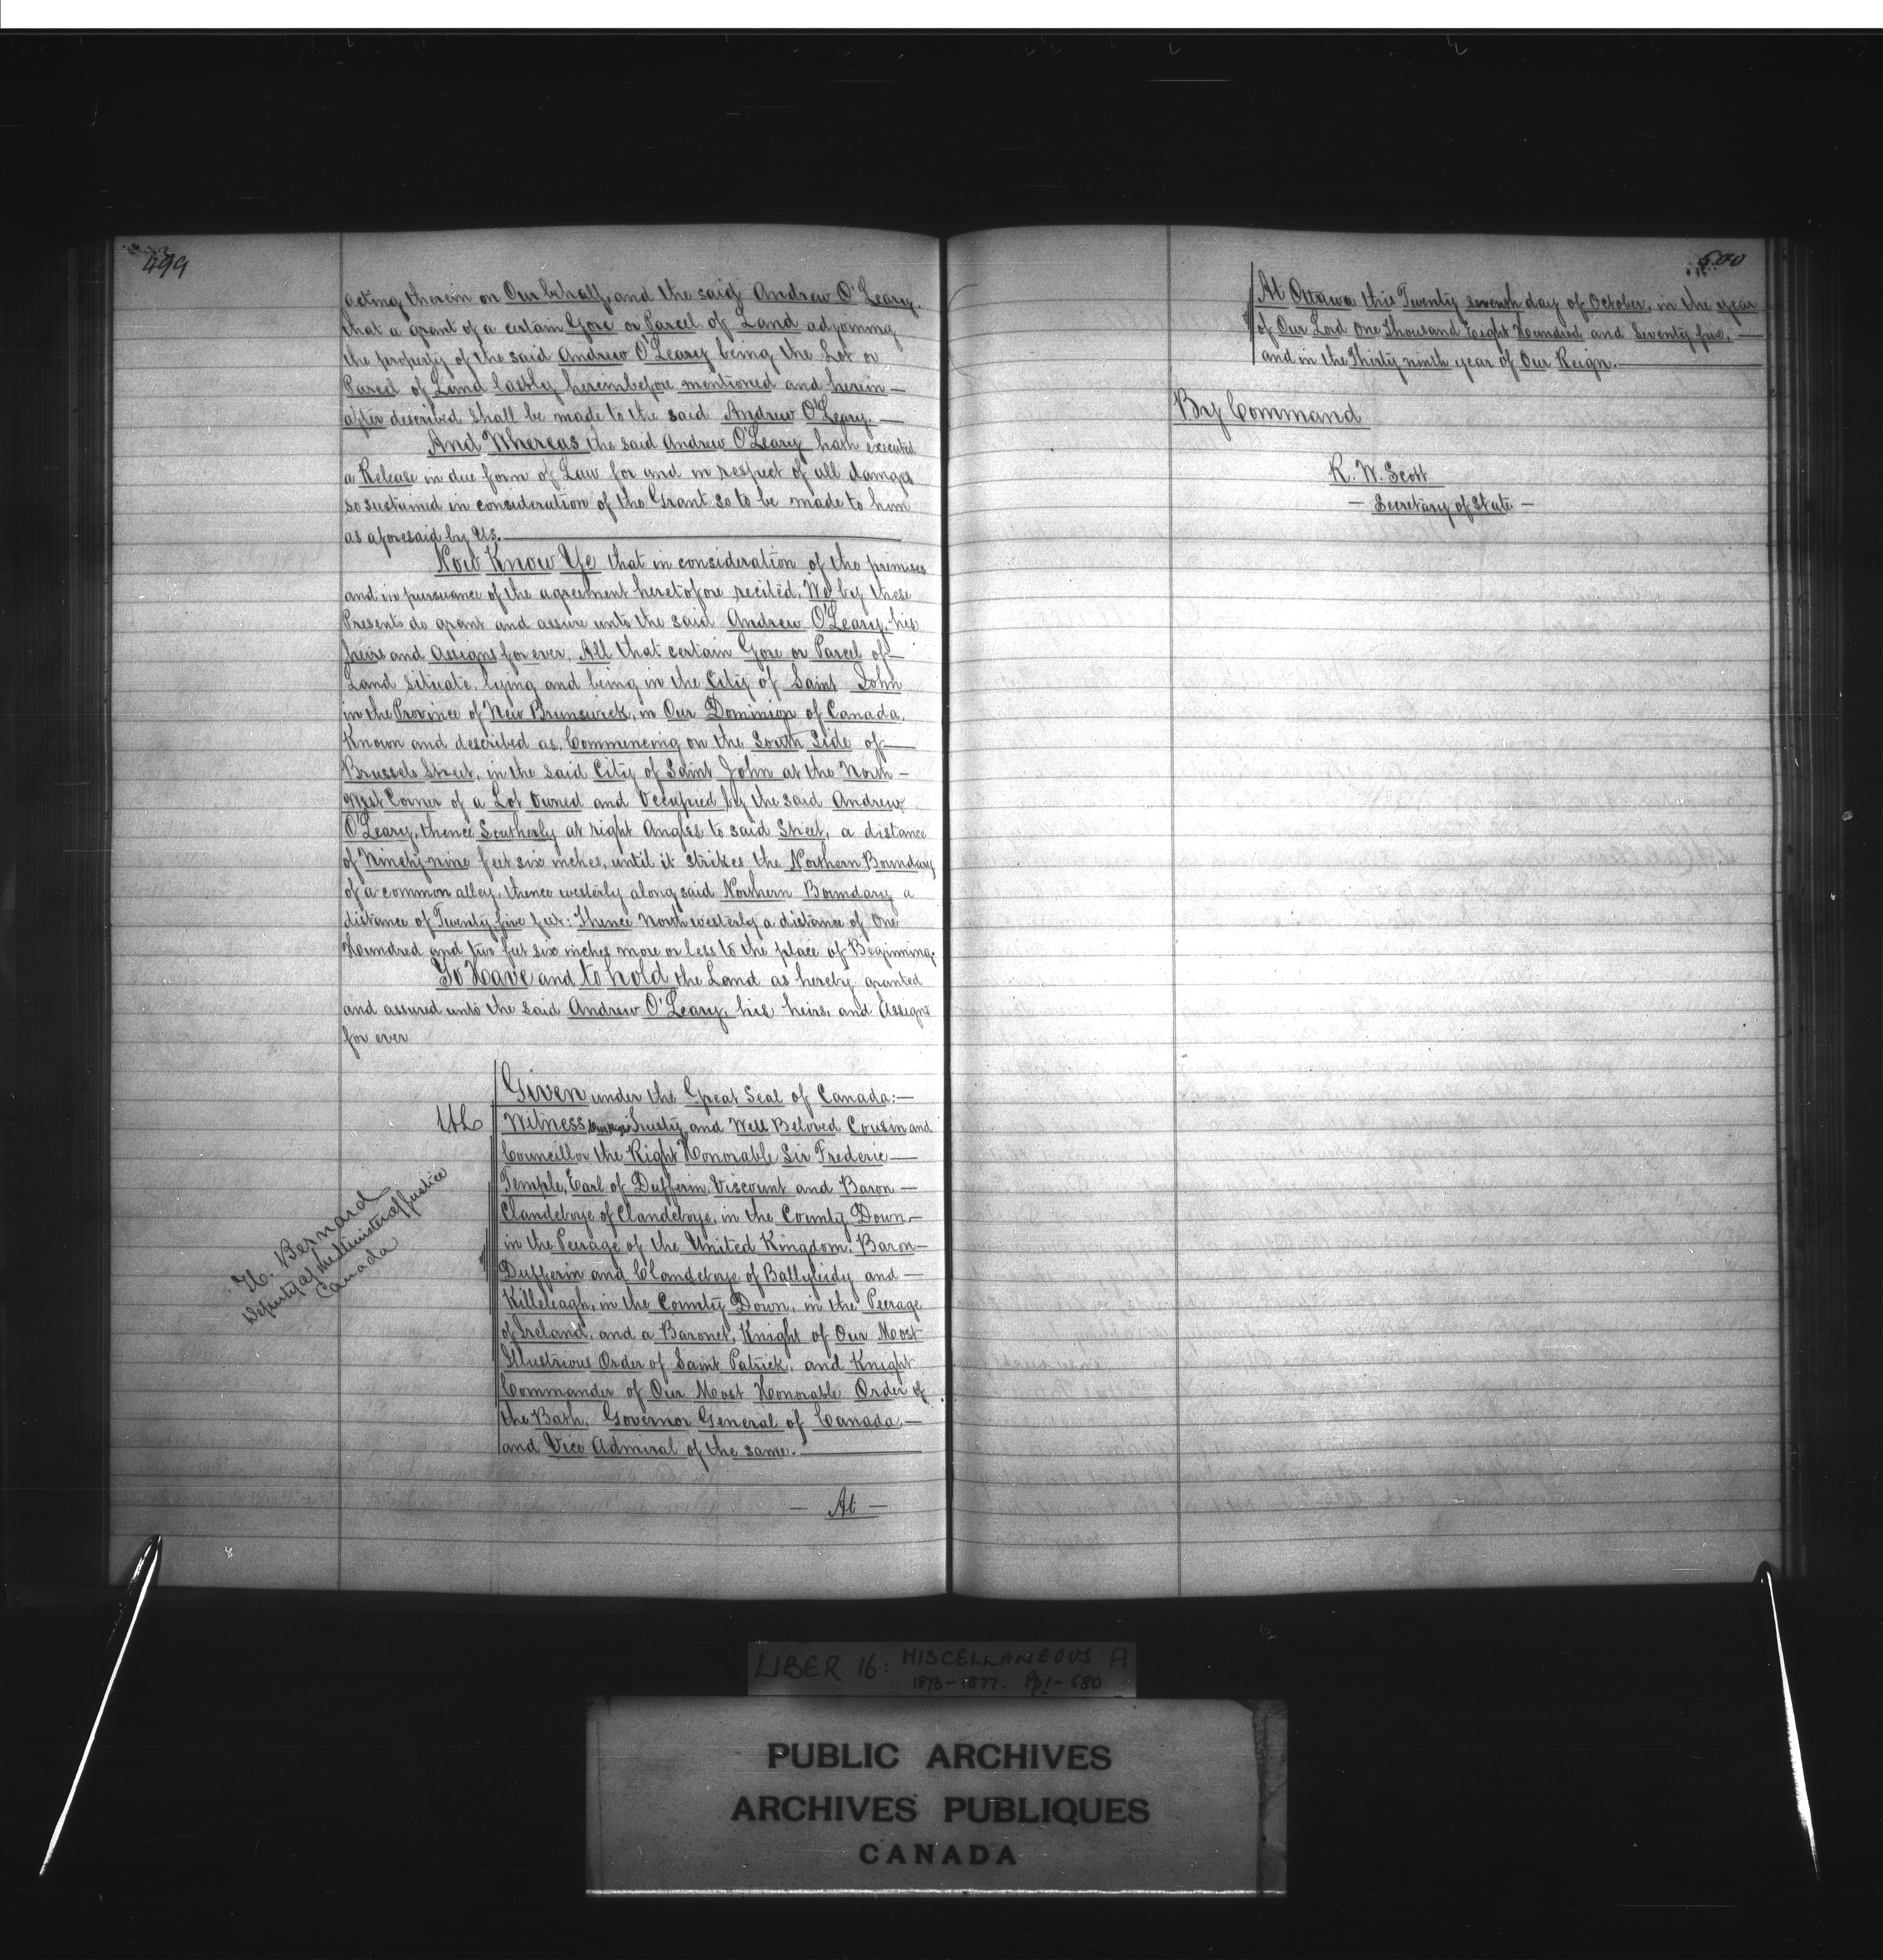 499
acting therein on Our behalf, and the said Andrew O'Leary.
that a grant of a certain Gore or Parcel of Land adjoining
the property of the said Andrew O'Leary being the Lot or
Parcel of Land lastly hereinbefore mentioned and herein —
after described shall be made to the said Andrew O'Leary. —
And Whereas the said Andrew O'Leary hath executed
a Release in due form of Law for and in respect of all damage
so sustained in consideration of the Grant so to be made to him
as aforesaid by Us. —
Now Know Ye that in consideration of the premises
and in pursuance of the agreement heretofore recited, We by these
Presents do grant and assure unto the said Andrew O'Leary, his
heirs and Assigns for ever, All that certain Gore or Parcel of —
Land situate, lying and being in the City of Saint John
in the Province of New Brunswick, in Our Dominion of Canada,
Known and described as, Commencing on the South Side of —
Brussels Street, in the said City of Saint John at the North —
West Corner of a Lot owned and Occupied by the said Andrew
O'Leary, thence Southerly at right Angles to said Street, a distance
of Ninety-nine feet six inches, until it strikes the Northern Boundary
of a common alley, thence westerly along said Northern Boundary a
distance of Twenty-five feet: Thence North westerly a distance of One
Hundred and two feet six inches more or less to the place of Beginning.
To Have and to hold the Land as hereby granted
and assured unto the said Andrew O'Leary, his heirs, and Assigns
for ever
Given under the Great Seal of Canada: —
Witness, Trusty and Well Beloved Cousin and
Councillor the Right Honorable Sir Frederic —
Temple, Earl of Dufferin, Viscount and Baron —
Clandeboye of Clandeboye, in the County Down, —
in the Peerage of the United Kingdom, Baron —
Dufferin and Clandeboye of Ballyleidy and —
Killeleagh, in the County Down, in the Peerage
of Ireland, and a Baronet, Knight of Our Most
Illustrious Order of Saint Patrick, and Knight
Commander of Our Most Honorable Order of
the Bath, Governor General of Canada, —
and Vice Admiral of the same. —
H. Bernard
Deputy of the Minister of Justice
Canada
— At —
500
At Ottawa this Twenty seventh day of October, in the year
of Our Lord One Thousand Eight Hundred and Seventy five, —
and in the Thirty ninth year of Our Reign. —
By Command
R. W. Scott
— Secretary of State —
LIBER 16: MISCELLANEOUS A
1873-1877. Pp 1-680
PUBLIC ARCHIVES
ARCHIVES PUBLIQUES
CANADA